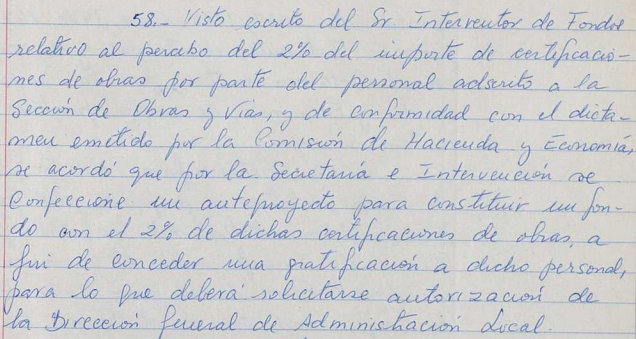 58.- Visto escrito del Sr. Interventor de Fondos
relativo al percibo del 2% del importe de certificacio-
nes de obras por parte del personal adscrito a la
Sección de Obras y Vías, y de conformidad con el dicta-
men emitido por la Comisión de Hacienda y Economía,
se acordó que por la Secretaría e Intervención se
confeccione un anteproyecto para constituir un fon-
do con el 2% de dichas certificaciones de obras, a
fin de conceder una gratificación a dicho personal,
para lo que deberá solicitarse autorización de
la Dirección General de Administración Local.